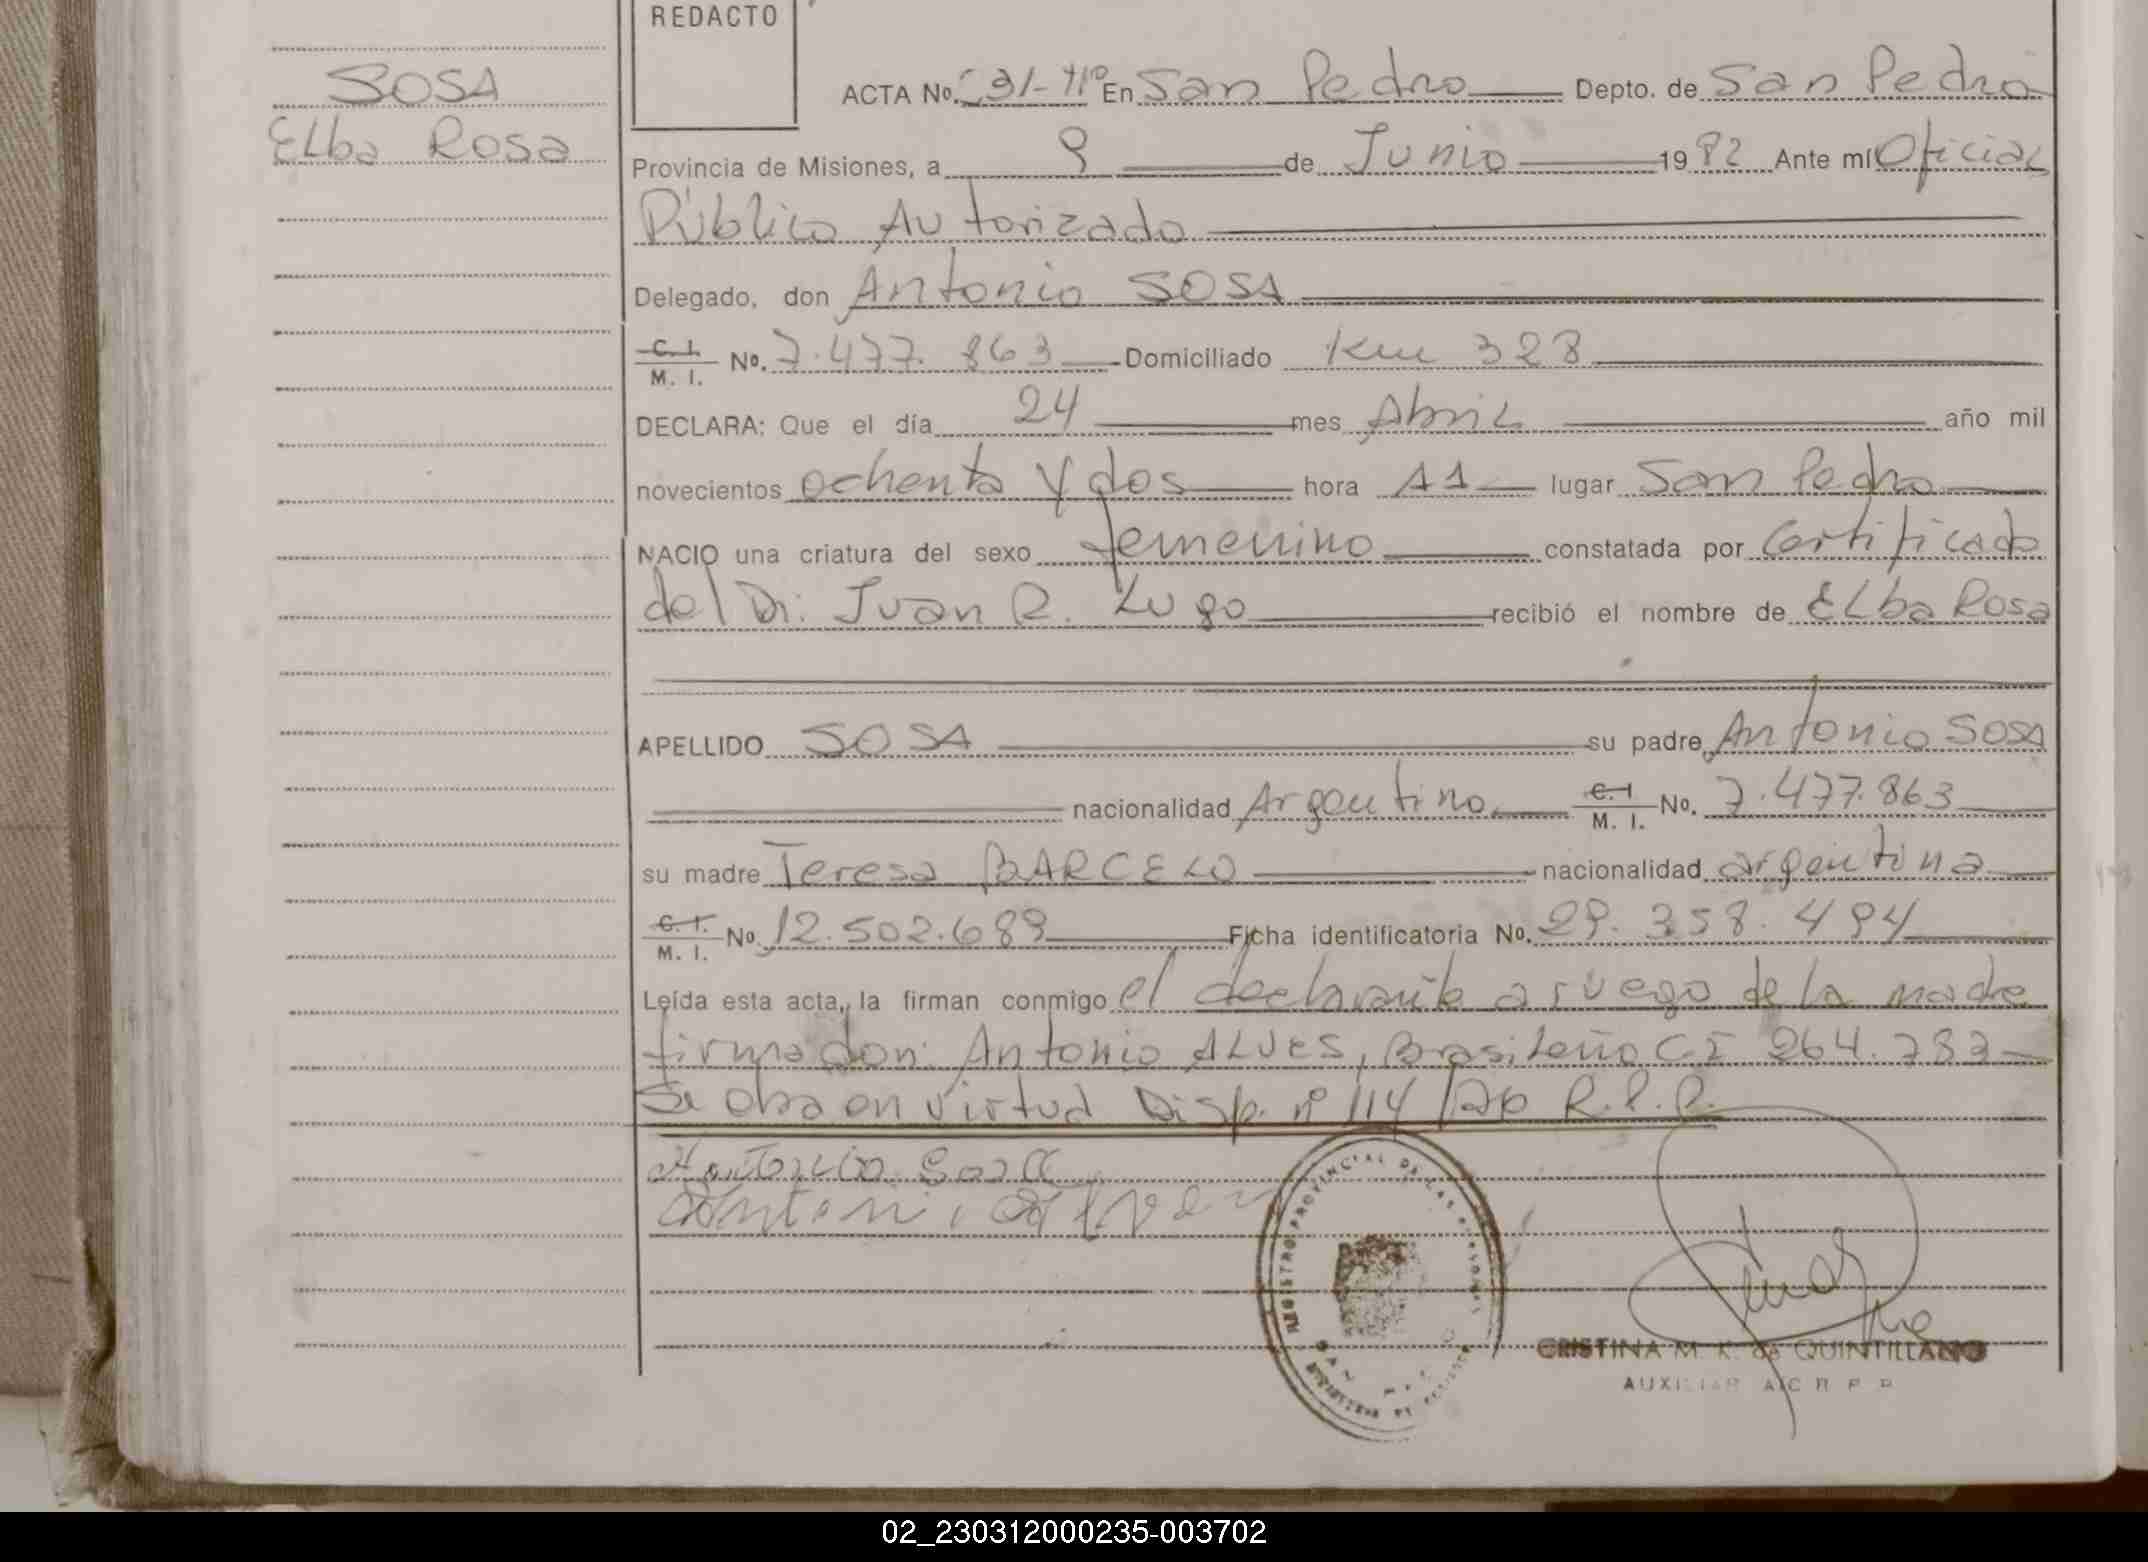 REDACTO
SOSA
Elba Rosa
ACTA No. 31-Tº En San Pedro Depto. de San Pedro
Provincia de Misiones, a 9 de Junio 1982 Ante mí Oficial
Público Autorizado
Delegado, don Antonio SOSA
C. I. M. I. No. 7.477.863 Domiciliado Km 328
DECLARA: Que el día 24 mes Abril año mil
novecientos ochenta y dos hora 11 lugar San Pedro
NACIO una criatura del sexo femenino constatada por Certificado
del Dr. Juan R. Lugo recibió el nombre de Elba Rosa
APELLIDO SOSA su padre Antonio SOSA
nacionalidad Argentino C. I. M. I. No. 7.477.863
su madre Teresa BARCELO nacionalidad argentina
C. I. M. I. No. 12.502.689 Ficha identificatoria No. 29.358.494
Leída esta acta, la firman conmigo el declarante a ruego de la madre
firma don: Antonio ALVES, Brasileño C.I 264.787
Se obra en virtud Disp. nº 114 R.P.P.
Antonio Sosa
REGISTRO PROVINCIAL DE LAS PERSONAS
CRISTINA M. K. de QUINTILLANO
AUXILIAR A/C R P P
02_230312000235-003702